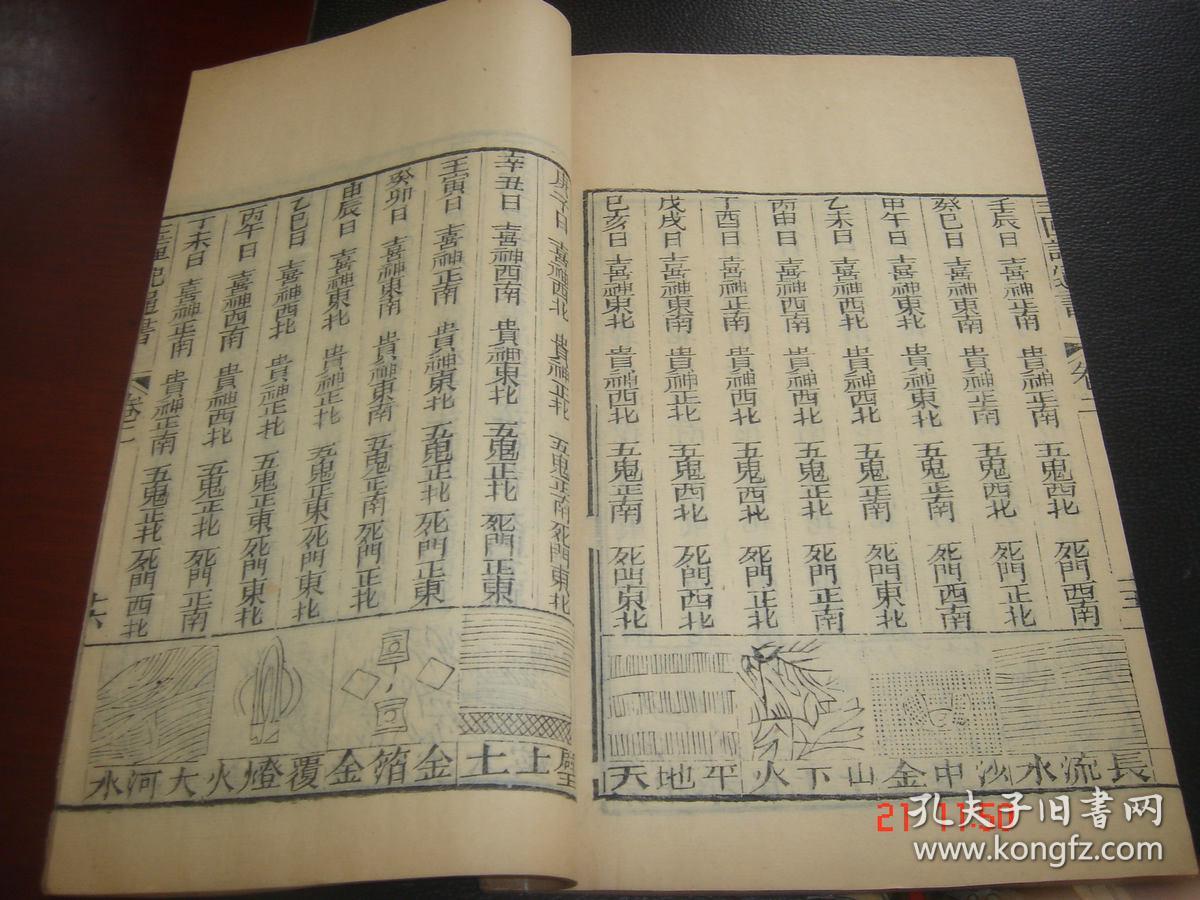 壬辰日 喜神正南 貴神正南 五鬼西北 死門西南
癸巳日 喜神東南 貴神正南 五鬼西北 死門正北
甲午日 喜神東北 貴神東北 五鬼正南 死門西南
乙未日 喜神西北 貴神西北 五鬼正南 死門東北
丙申日 喜神西南 貴神西北 五鬼正北 死門正南
丁酉日 喜神正南 貴神西北 五鬼西北 死門正北
戊戌日 喜神東南 貴神西北 五鬼西北 死門西北
己亥日 喜神東北 貴神西北 五鬼正南 死門東北
長流水
沙中金
山下火
平地
天
卷二
庚子日 喜神西北 貴神正北 五鬼正南 死門東北
辛丑日 喜神西南 貴神東北 五鬼正北 死門正東
壬寅日 喜神正南 貴神東北 五鬼正北 死門正東
癸卯日 喜神東南 貴神東南 五鬼正南 死門正北
甲辰日 喜神東北 貴神正北 五鬼正東 死門東北
乙巳日 喜神西北 貴神正北 五鬼正東 死門東北
丙午日 喜神西南 貴神西北 五鬼正北 死門正南
丁未日 喜神正南 貴神正南 五鬼正北 死門西北
壁上土
金箔金
覆燈火
大河水
卷二
十六
孔夫子旧书网
www.kongfz.com